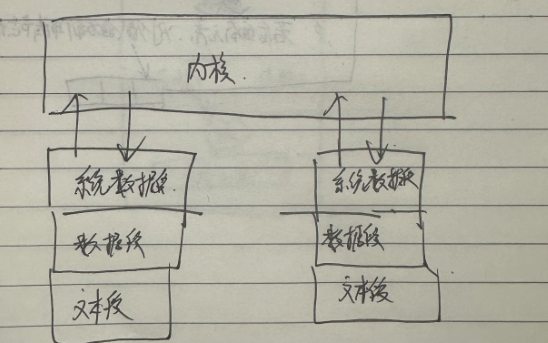 内核.
系统数据段 系统数据段
数据段 数据段
文本段 文本段